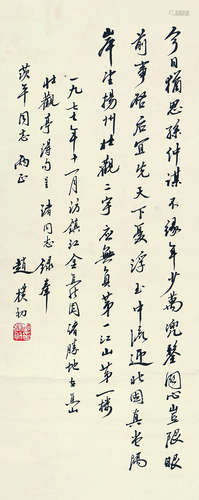 今日犹思孙仲谋不缘年少万兜鍪同心岂限眼
前事启后宜先天下忧浮玉中流迎北固真堂隔
岸望扬州壮观二字应无负第一江山第一楼
一九七七年十一月访镇江金焦北固诸胜地
壮观亭得句主诸同志录奉
同志两正
赵朴初